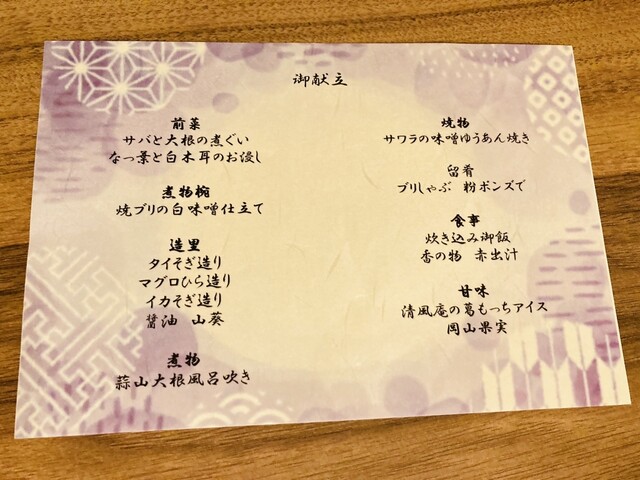 御献立
前菜
サバと大根の煮ぐい
なっ葉と白木耳のお浸し
煮物椀
焼ブリの白味噌仕立て
造里
タイそぎ造り
マグロひら造り
イカそぎ造り
醤油 山葵
煮物
蒜山大根風呂吹き
焼物
サワラの味噌ゆうあん焼き
留肴
ブリしゃぶ 粉ポンズで
食事
炊き込み御飯
香の物 赤出汁
甘味
清風庵の葛もっちアイス
岡山果実